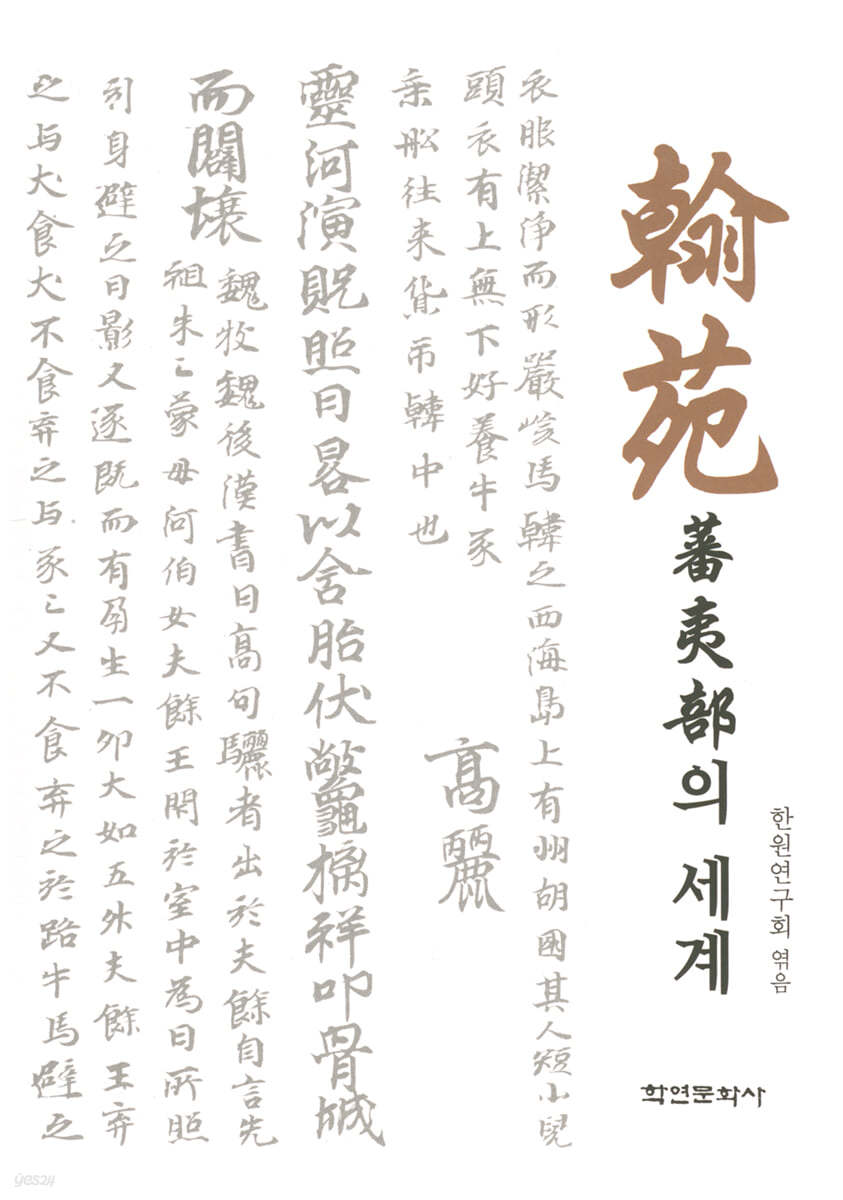 翰苑
蕃夷部의 세계
한원연구회 엮음
학연문화사
衣服潔浄而形嚴峻馬韓之西海島上有州胡國其人短小兒
頭衣有上無下好養牛豕
乗舩往来貨市韓中也
高麗
靈河演貺照日晷以含胎伏鼈摛祥叩骨城
而闢壤
魏牧魏後漢書曰高句驪者出於夫餘自言先
祖朱々蒙母河伯女夫餘王閇於室中為日所照
引身避之日影又逐既而有孕生一卵大如五升夫餘王弃
之与犬食犬不食弃之与豕々又不食弃之於路牛馬避之
yes24